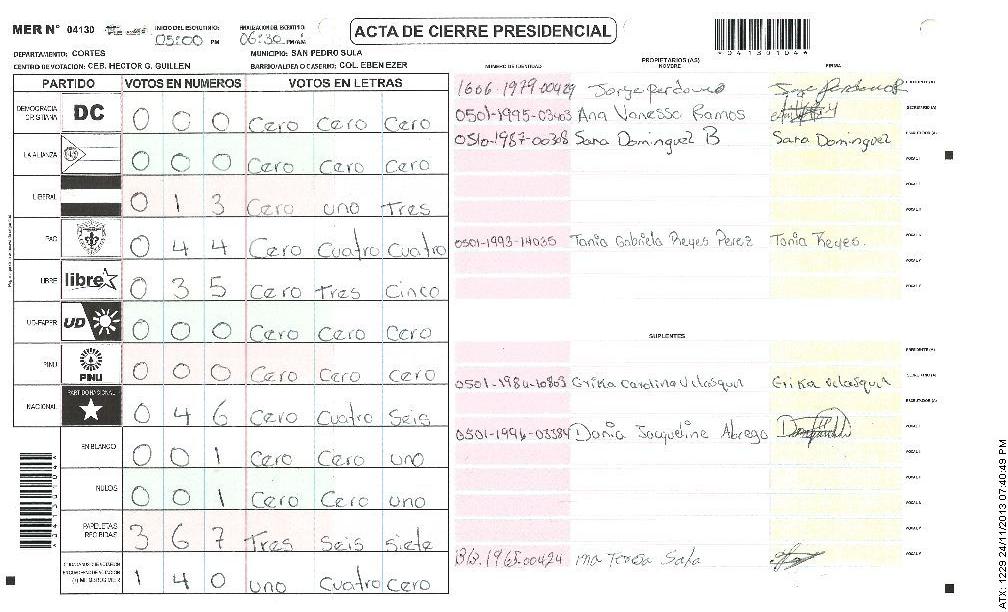 MER N° 04130 INICIO DEL ESCRUTINIO: 05:00 PM FINALIZACION DEL ESCRUTINIO: 06:30 PM/AM
ACTA DE CIERRE PRESIDENCIAL
DEPARTAMENTO: CORTES MUNICIPIO: SAN PEDRO SULA
CENTRO DE VOTACION: CEB. HECTOR G. GUILLEN BARRIO/ALDEA O CASERIO: COL. EBEN EZER
PARTIDO VOTOS EN NUMEROS VOTOS EN LETRAS
DEMOCRACIA CRISTIANA DC 0 0 0 Cero Cero Cero
LA ALIANZA 0 0 0 Cero Cero Cero
LIBERAL 0 1 3 Cero uno Tres
PAC 0 4 4 Cero Cuatro Cuatro
LIBRE libre 0 3 5 Cero Tres Cinco
UD-FAPER UD 0 0 0 Cero Cero Cero
PINU PINU 0 0 0 Cero Cero cero
NACIONAL PARTIDO NACIONAL 0 4 6 Cero Cuatro Seis
EN BLANCO 0 0 1 Cero Cero uno
NULOS 0 0 1 Cero Cero uno
PAPELETAS RECIBIDAS 3 6 7 Tres Seis siete
1 4 0 uno Cuatro Cero
PROPIETARIOS (AS)
NUMERO DE IDENTIDAD NOMBRE FIRMA
1606-1979-00429 Jorge Perdomo Jorge Perdomo
0501-1995-03403 Ana Vanessa Ramos
SECRETARIO (A)
0510-1987-00308 Sara Dominguez B Sara Dominguez
ESCRUTADOR (A)
0501-1993-14035 Tania Gabriela Reyes Perez Tania Reyes.
SUPLENTES
PRESIDENTE (A)
Erika Carolina Velasquez Erika Velasquez
SECRETARIO (A)
ESCRUTADOR (A)
0501-1996-03384 Dania Jacqueline Abrego
ATX: 1229 24/11/2013 07:40:49 PM